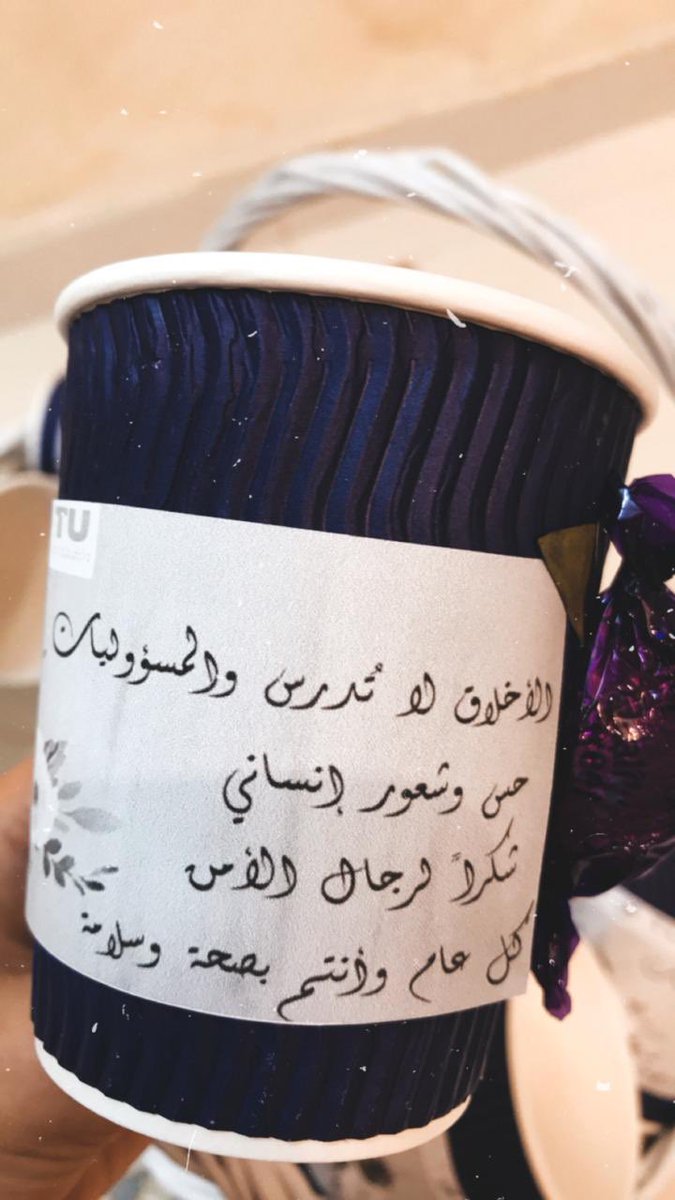 TU
الأخلاق لا تُدرس والمسؤوليات
حس وشعور إنساني
شكراً لرجال الأمن
كل عام وأنتم بصحة وسلامة